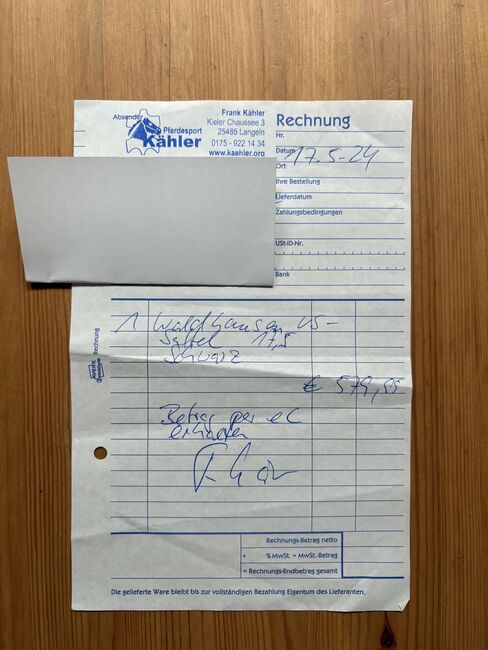 Absender
Pferdesport
Kähler
Frank Kähler
Kieler Chaussee 3
25485 Langeln
0175 - 922 14 34
www.kaehler.org
Rechnung
Nr.
Datum 17.5-24
Ort
Ihre Bestellung
Lieferdatum
Zahlungsbedingungen
USt-ID-Nr.
Bank
Rechnung
1 Waldhausen VS-
Sattel 17,5
Schwarz
€ 579,95
Betrag per ec
erhalten
Rechnungs-Betrag netto
+ % MwSt. = MwSt.-Betrag
= Rechnungs-Endbetrag gesamt
Die gelieferte Ware bleibt bis zur vollständigen Bezahlung Eigentum des Lieferanten.